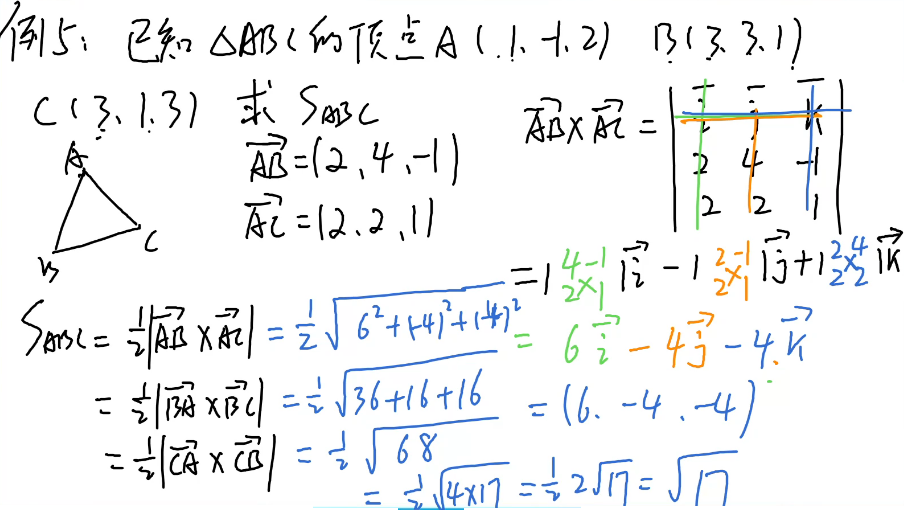 例5: 已知 △ABC的顶点A(1.-1.2) B(3.3.1)
C(3.1.3) 求 S_ABC
AB→=(2,4,-1)
AC→=(2.2,1)
AB→×AC→ = | i→ j→ k→ |
| 2 4 -1 |
| 2 2 1 |
= |4 -1 2 1| i→ - |2 -1 2 1| j→ + |2 4 2 2| k→
= 6i→ - 4j→ - 4.k→
= (6. -4 .-4)
A
B
C
S_ABC = 1/2|AB→ × AC→| = 1/2 √(6²+(-4)²+(-4)²)
= 1/2|BA→ × BC→| = 1/2 √(36+16+16)
= 1/2|CA→ × CB→| = 1/2 √68
= 1/2 √(4×17) = 1/2 2√17 = √17